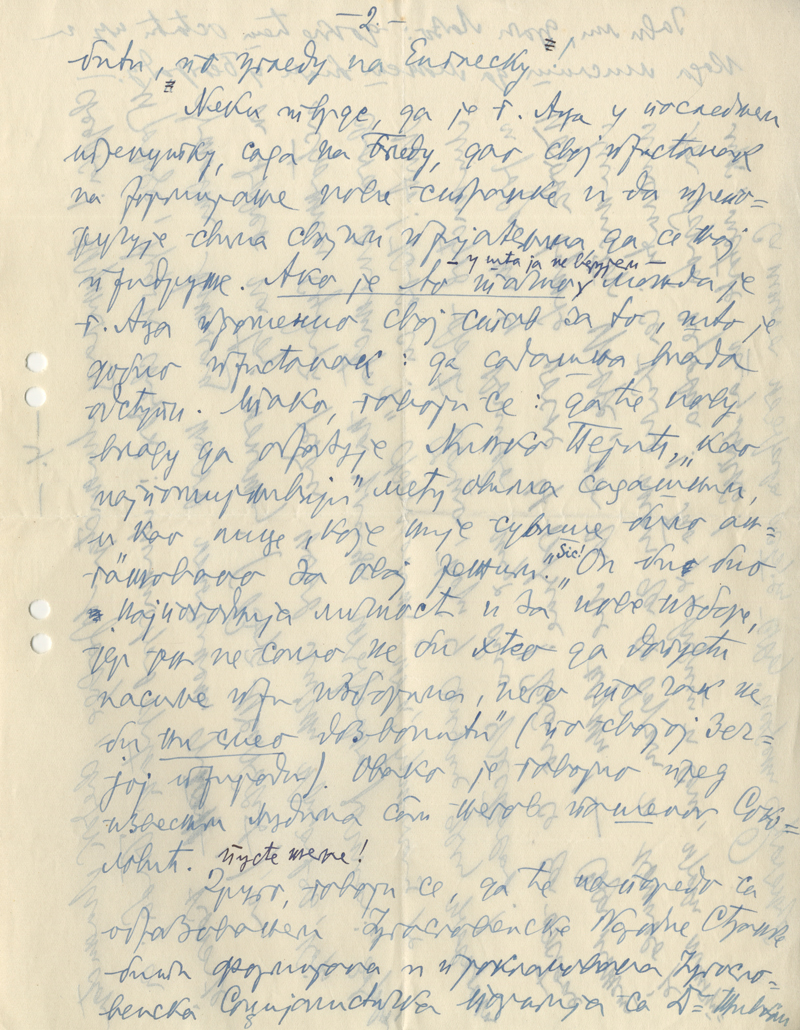 - 2. -
бити, по угледу на Енглеску",
Неки тврде, да је г. Аца у последњем
тренутку, сада на Бледу, дао свој пристанак
на формирање нове странке и да препо=
ручује свима својим пријатељима, да се тој
- у шта ја не верујем -
придруже. Ако је то тачно, можда је
г. Аца променио свој став за то, што је
добио пристанак: да садашња влада
отступи. Тако, говори се: да ће нову
владу да образује Нинко Перић, „као
најпомирљивији" међу овима садашњим,
и као лице, „које није сувише било ан=
гажовано за овај режим." Sic! „Он би био
најпогоднија личност и за нове изборе,
јер он не само не би хтео да допусти
насиље при изборима, него то чак не
би ни смео дозволити" (по својој зеч=
јој природи). Овако је говорио пред
извесним људима сам његов имењак Соко=
ловић. Пусте жеље!
Друго, говори се, да ће напоредо са
образовањем Југословенске Народне Странке
бити формирана и прокламована Југосло=
венска Социјалистичка Партија са Др